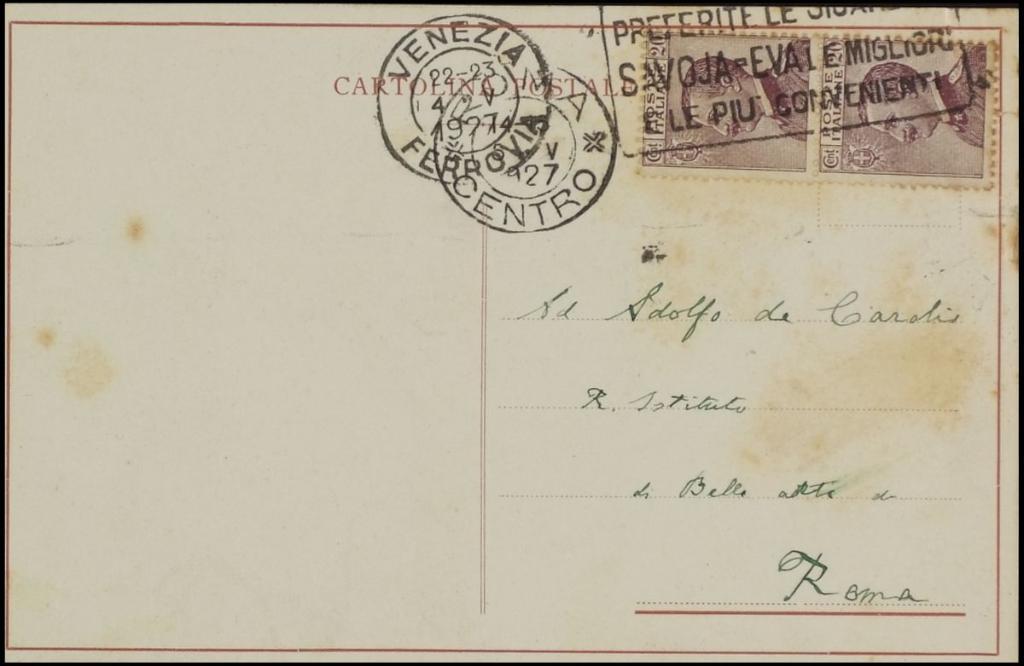 PREFERITE LE
SAVOJA-EVA LE MIGLIORI
E LE PIU' CONVENIENTI
VENEZIA
22-23
4 V
1927
FERROVIA
MA
V
927
CENTRO
CARTOLINA POSTALE
POSTE ITALIANE 20
Cent
POSTE ITALIANE 20
Cent
Ad Adolfo de Carolis
R. Istituto
di Belle arti di
Roma